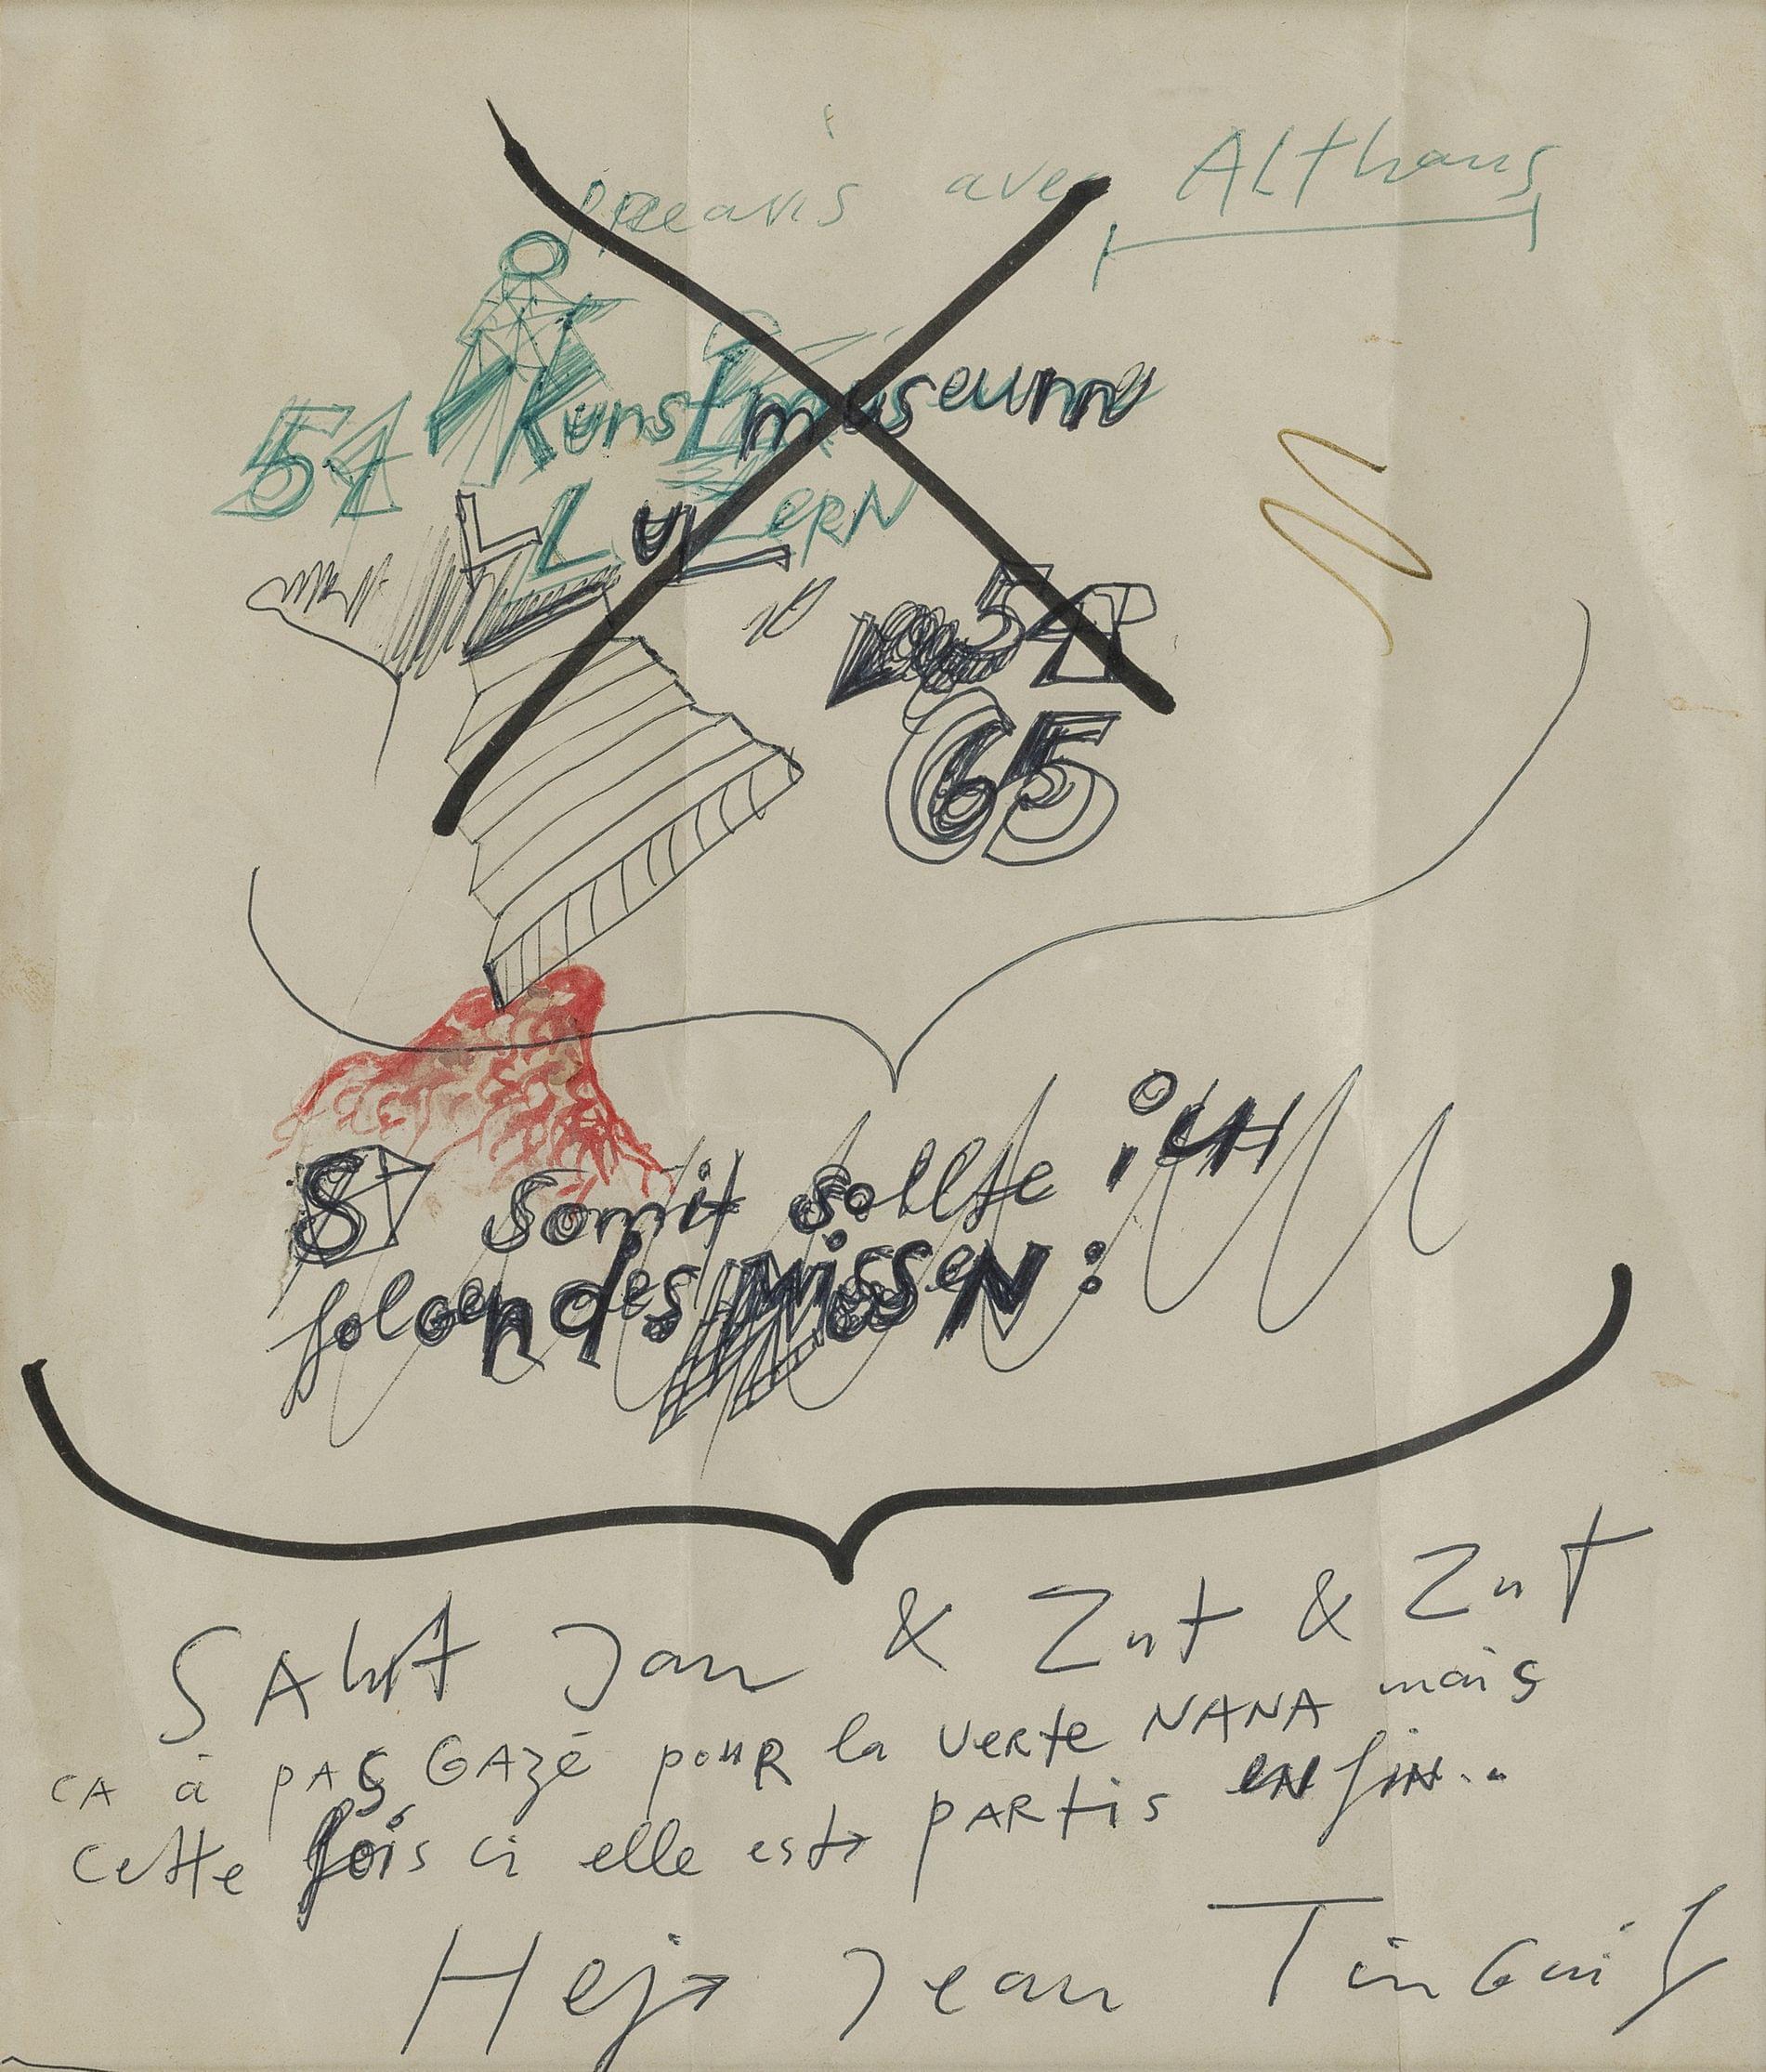 preavis avec Althaus
51 Kunstmuseum
Luzern
51
65
somit sollte ich
folgendes wissen:
SALUT Jan & Zut & Zut
CA à PAS GAZé pouR la VeRte NANA mais
Cette fois ci elle est PARtis eN fiN..
Hej Jean TinGuely